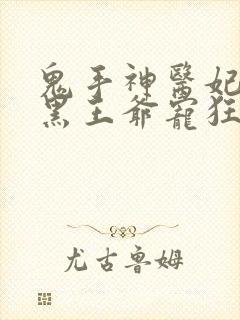 鬼手神醫妃
黑王爺寵狂
尤古魯姆